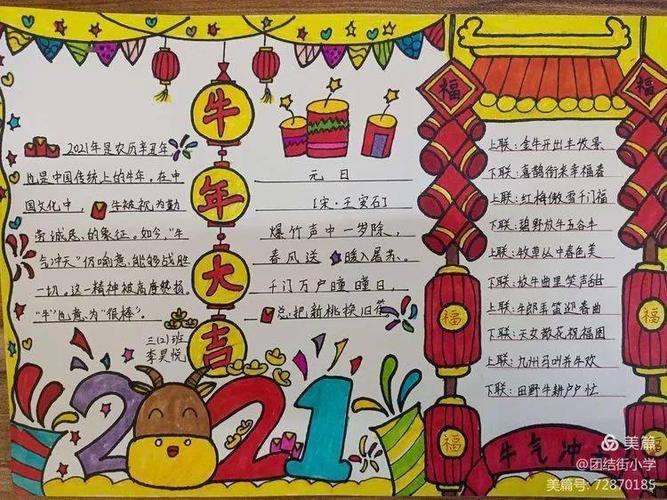 2021年是农历辛丑年
也是中国传统上的牛年。在中
国文化中，牛被视为勤
劳诚恳、的象征。如今，"牛
气冲天"仍喻意、能够战胜
一切。这一精神被高度赞扬。
"牛"也意、为"很棒"。
三(2)班
李昊悦
牛年大吉
2021
元日
[宋·王安石]
爆竹声中一岁除，
春风送暖入屠苏。
千门万户曈曈日，
总把新桃换旧符
福
福
上联：金牛开出丰收景
下联：喜鹊衔来幸福春
上联：红梅傲雪千门福
下联：碧野放牛五谷
上联：牧童从中春色美
下联：放牛曲里笑声甜
上联：牛郎弄笛迎春曲
下联：天女散花祝福图
上联：九州
下联：田野牛耕户户忙
福
福
福
福
牛气冲
美篇
@团结街小学
美篇号: 72870185